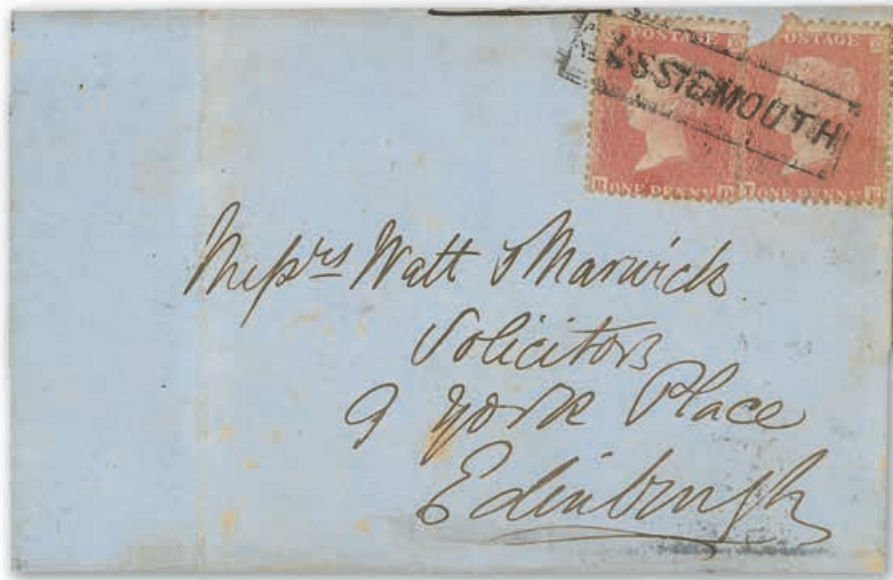 POSTAGE
OSTAGE
LOSSIEMOUTH
ONE PENNY
ONE PENNY
Messrs Watt & Marwick
Solicitors
9 York Place
Edinburgh